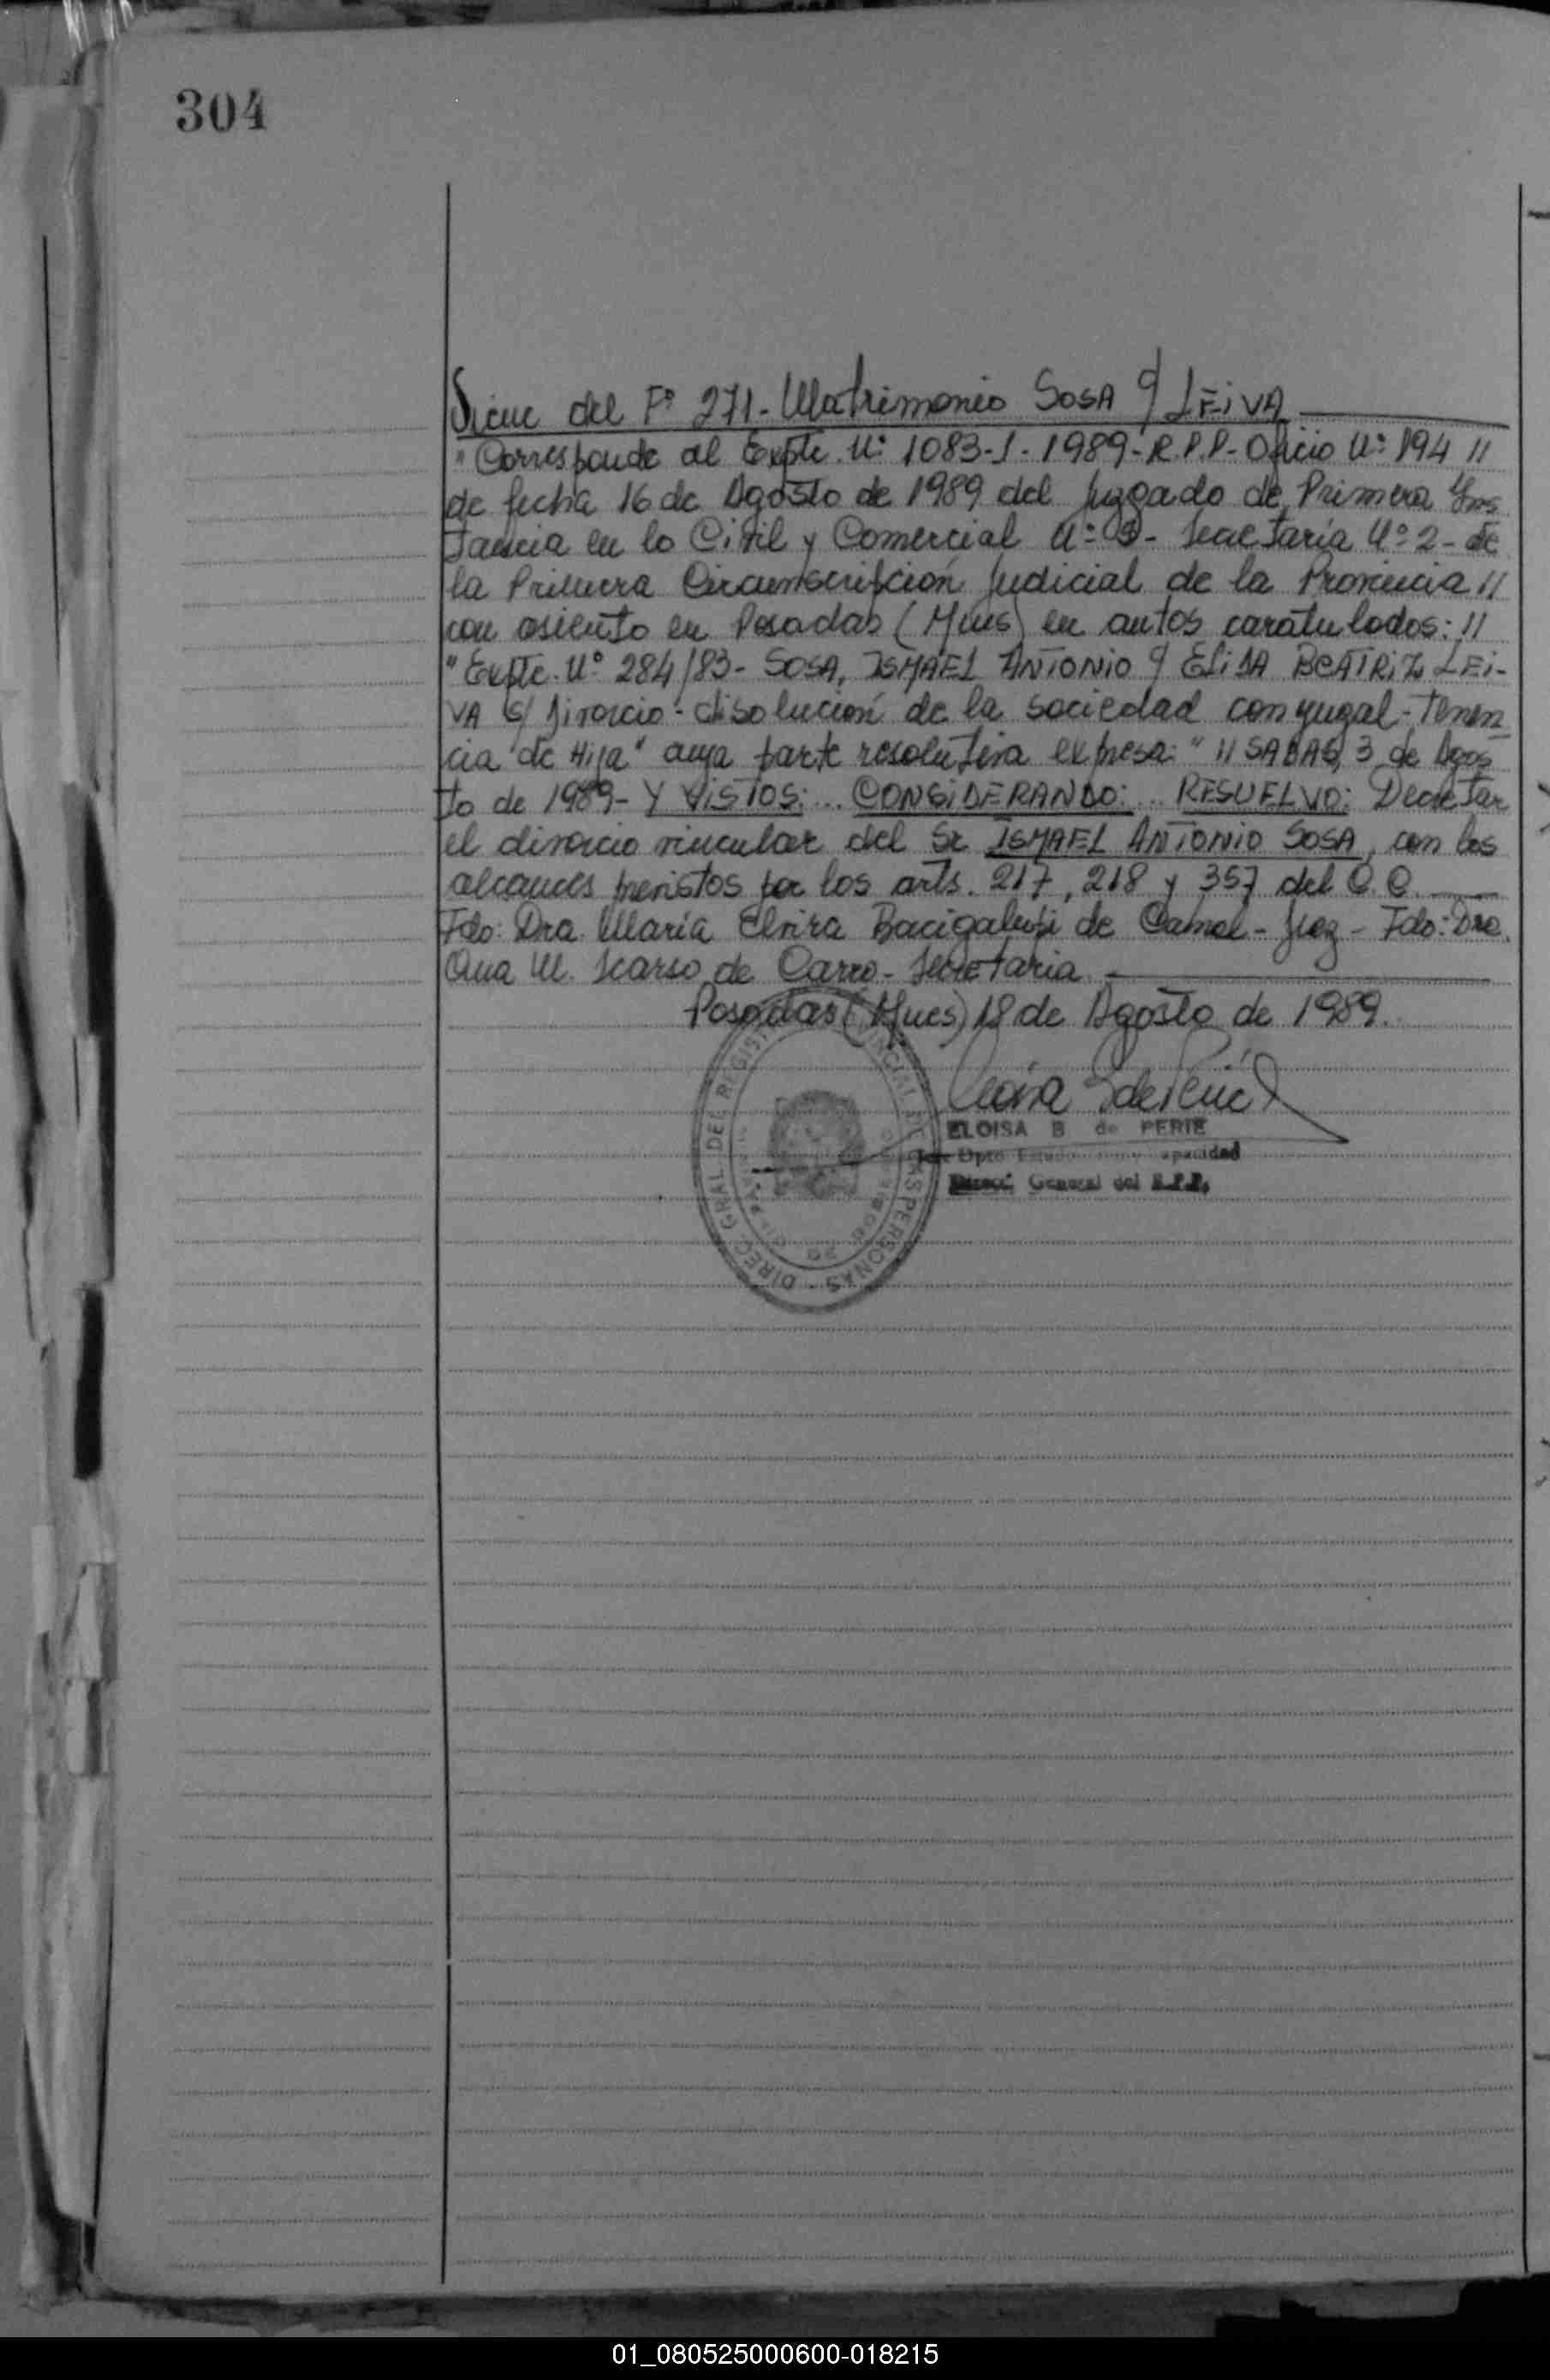 304
Viene del F° 271- Matrimonio SOSA c/ LEiVA
"Corresponde al Expte. N° 1083-S-1989-R.P.P- Oficio N° 194 //
de fecha 16 de Agosto de 1989 del Juzgado de Primera Ins
tancia en lo Civil y Comercial N° 3- Secretaría N° 2- de
la Primera Circunscripción Judicial de la Provincia //
con asiento en Posadas (Mnes) en autos caratulados: //
"Expte. N° 284/83- SOSA, ISMAEL ANTONIO c/ ELiSA BEATRiZ LEi-
VA s/ Divorcio- disolución de la sociedad conyugal- Tenen
cia de Hija" cuya parte resolutiva expresa: " //SADAS, 3 de Agos
to de 1989- Y ViSTOS:.. CONSiDERANDO:.. RESUELVO: Decretar
el divorcio vincular del Sr ISMAEL ANTONIO SOSA, con los
alcances previstos por los arts. 217, 218 y 357 del C.C.
Fdo: Dra. María Elvira Bacigalupi de Camel- Juez- Fdo: Dra.
Ana M. Scarso de Carro- Secretaria
Posadas (Mnes) 18 de Agosto de 1989.
ELOISA B de PERIE
Jefe Dpto Estado y Capacidad
Direcc. General del R.P.P.
DIREC. GRAL. DEL REGIST PROVINCIAL DE LAS PERSONAS
01_080525000600-018215